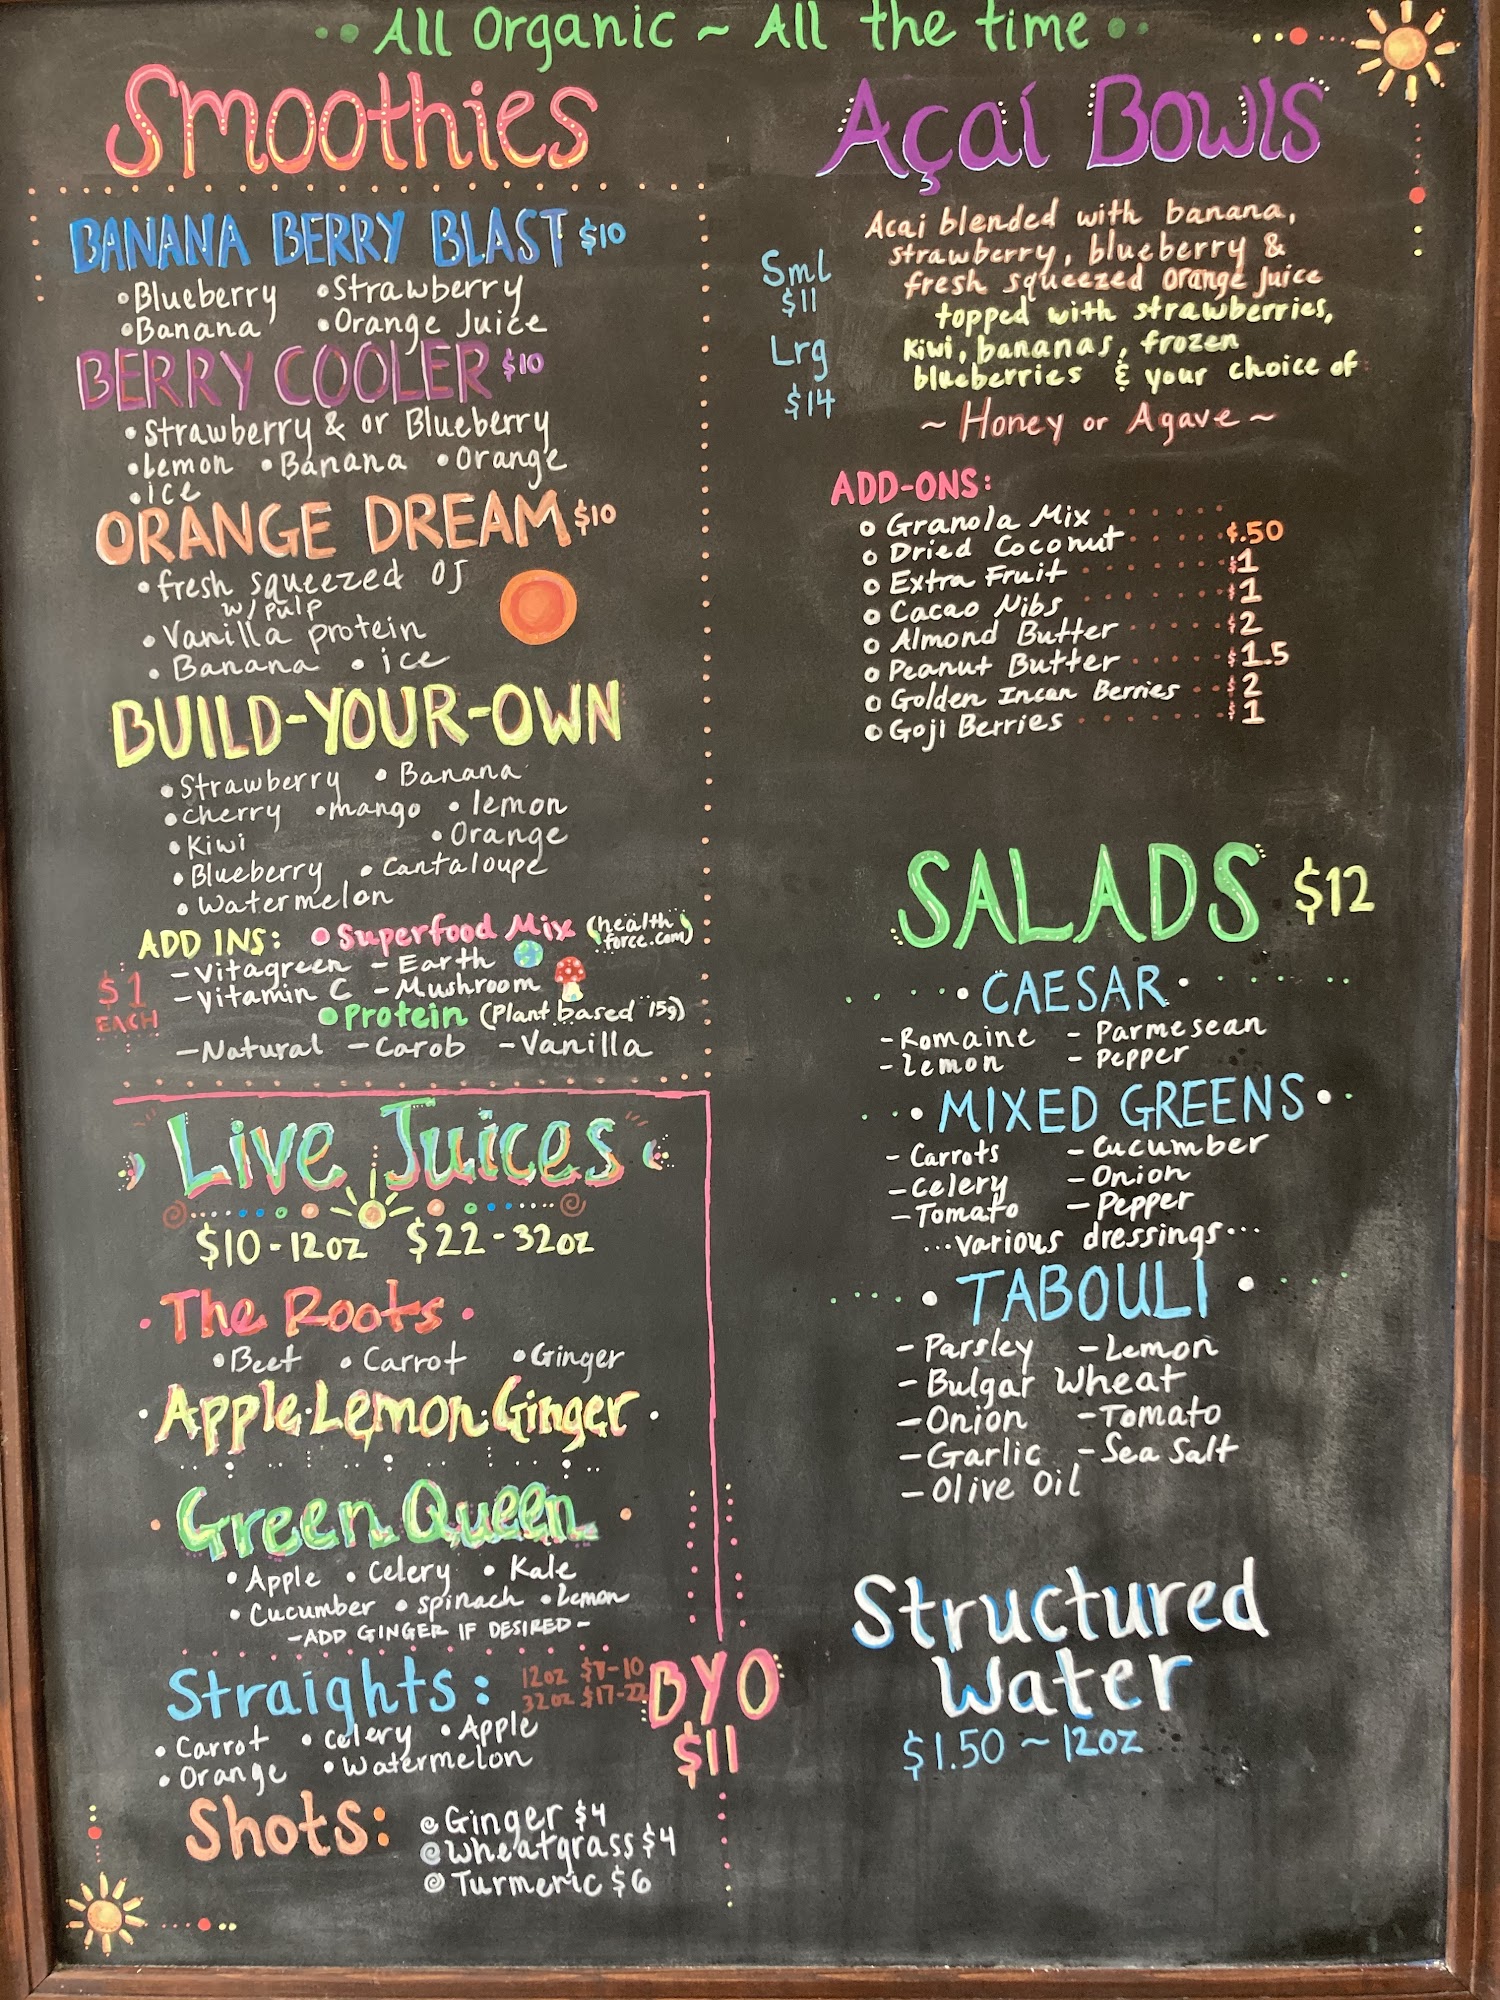 All Organic ~ All the time
Smoothies
BANANA BERRY BLAST $10
•Blueberry •Strawberry
•Banana •Orange Juice
BERRY COOLER $10
•Strawberry & or Blueberry
•Lemon •Banana •Orange
•ice
ORANGE DREAM $10
•fresh squeezed OJ
w/ pulp
•Vanilla protein
•Banana •ice
BUILD-YOUR-OWN
•Strawberry •Banana
•cherry •mango •lemon
•Kiwi •Orange
•Blueberry •Cantaloupe
•Watermelon
ADD INS: •Superfood Mix (health
force.com)
$1
EACH
-Vitagreen -Earth
-Vitamin C -Mushroom
•Protein (Plant based 15g)
-Natural -Carob -Vanilla
Live Juices
$10-12oz $22-32oz
•The Roots•
•Beet •Carrot •Ginger
•Apple•Lemon•Ginger•
•Green Queen•
•Apple •Celery •Kale
•Cucumber •spinach •Lemon
-ADD GINGER IF DESIRED-
Straights: 12oz $7-10
32oz $17-22
•Carrot •Celery •Apple
•Orange •Watermelon
BYO
$11
Shots: Ginger $4
Wheatgrass $4
Turmeric $6
Açaí Bowls
Sml
$11
Lrg
$14
Acai blended with banana,
strawberry, blueberry &
fresh squeezed orange juice
topped with strawberries,
Kiwi, bananas, frozen
blueberries & your choice of
~Honey or Agave~
ADD-ONS:
Granola Mix
Dried Coconut $.50
Extra Fruit $1
Cacao Nibs $1
Almond Butter $2
Peanut Butter $1.5
Golden Incan Berries $2
Goji Berries $1
SALADS $12
•CAESAR•
-Romaine -Parmesean
-Lemon -Pepper
•MIXED GREENS•
-Carrots -Cucumber
-Celery -Onion
-Tomato -Pepper
...various dressings...
•TABOULI•
-Parsley -Lemon
-Bulgar Wheat
-Onion -Tomato
-Garlic -Sea Salt
-Olive Oil
Structured
Water
$1.50 ~ 12oz